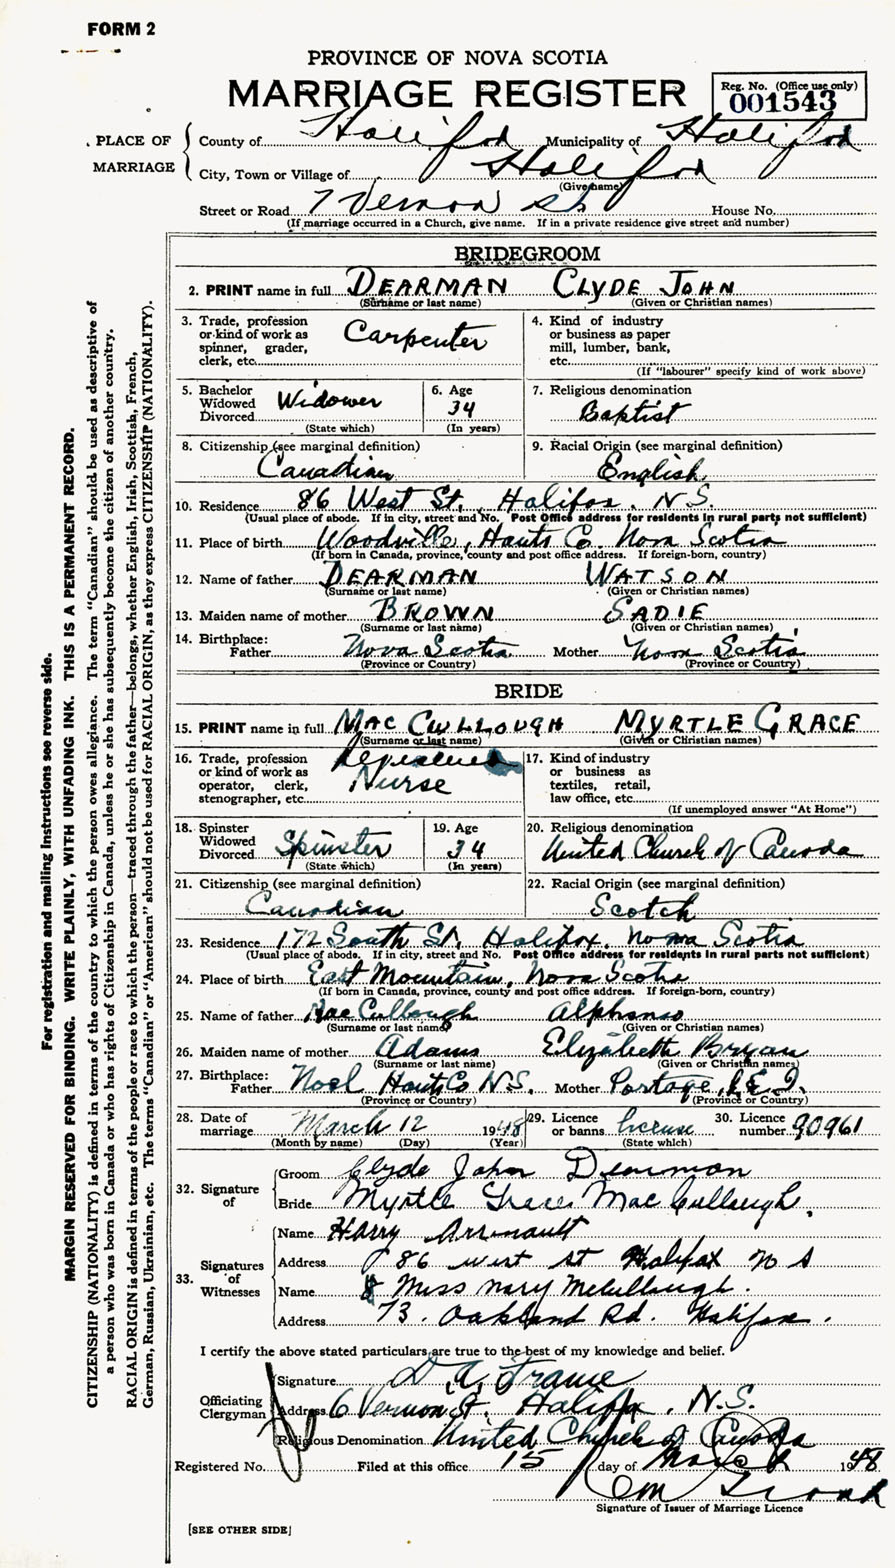 FORM 2
PROVINCE OF NOVA SCOTIA
MARRIAGE REGISTER
Reg. No. (Office use only)
001543
PLACE OF MARRIAGE
County of Halifax Municipality of Halifax
City, Town or Village of Halifax
(Give name)
Street or Road 7 Vernon St. House No.
(If marriage occurred in a Church, give name. If in a private residence give street and number)
BRIDEGROOM
2. PRINT name in full DEARMAN CLYDE JOHN
(Surname or last name) (Given or Christian names)
3. Trade, profession or kind of work as spinner, grader, clerk, etc. Carpenter
4. Kind of industry or business as paper mill, lumber, bank, etc.
(If "labourer" specify kind of work above)
5. Bachelor Widowed Divorced Widower
(State which)
6. Age 34
(In years)
7. Religious denomination
Baptist
8. Citizenship (see marginal definition)
Canadian
9. Racial Origin (see marginal definition)
English
10. Residence 86 West St., Halifax, N.S.
(Usual place of abode. If in city, street and No. Post Office address for residents in rural parts not sufficient)
11. Place of birth Woodville, Hants Co. Nova Scotia
(If born in Canada, province, county and post office address. If foreign-born, country)
12. Name of father DEARMAN WATSON
(Surname or last name) (Given or Christian names)
13. Maiden name of mother BROWN SADIE
(Surname or last name) (Given or Christian names)
14. Birthplace:
Father Nova Scotia Mother Nova Scotia
(Province or Country) (Province or Country)
BRIDE
15. PRINT name in full MAC CULLOUGH MYRTLE GRACE
(Surname or last name) (Given or Christian names)
16. Trade, profession or kind of work as operator, clerk, stenographer, etc. Registered Nurse
17. Kind of industry or business as textiles, retail, law office, etc.
(If unemployed answer "At Home")
18. Spinster Widowed Divorced Spinster
(State which)
19. Age 34
(In years)
20. Religious denomination
United Church of Canada
21. Citizenship (see marginal definition)
Canadian
22. Racial Origin (see marginal definition)
Scotch
23. Residence 172 South St. Halifax, Nova Scotia
(Usual place of abode. If in city, street and No. Post Office address for residents in rural parts not sufficient)
24. Place of birth East Mountain, Nova Scotia
(If born in Canada, province, county and post office address. If foreign-born, country)
25. Name of father MacCullough Alphonso
(Surname or last name) (Given or Christian names)
26. Maiden name of mother Adams Elizabeth Bryan
(Surname or last name) (Given or Christian names)
27. Birthplace:
Father Noel Hants Co N.S. Mother Portage, P.E.I.
(Province or Country) (Province or Country)
28. Date of marriage March 12 1948
(Month by name) (Day) (Year)
29. Licence or banns license
(State which)
30. Licence number 90961
32. Signature of
Groom Clyde John Dearman
Bride Myrtle Grace MacCullough.
33. Signatures of Witnesses
Name Harry Arsenault
Address 86 west st Halifax N S
Name Miss Mary McCullough.
Address 73 Oakland Rd. Halifax.
I certify the above stated particulars are true to the best of my knowledge and belief.
Officiating Clergyman
Signature D. A. Frame
Address 6 Vernon St. Halifax, N.S.
Religious Denomination United Church of Canada
Registered No. Filed at this office 15 day of March 1948
Signature of Issuer of Marriage Licence
[SEE OTHER SIDE]
For registration and mailing instructions see reverse side.
MARGIN RESERVED FOR BINDING. WRITE PLAINLY, WITH UNFADING INK. THIS IS A PERMANENT RECORD.
CITIZENSHIP (NATIONALITY) is defined in terms of the country to which the person owes allegiance. The term "Canadian" should be used as descriptive of
a person who was born in Canada or who has rights of Citizenship in Canada, unless he or she has subsequently become the citizen of another country.
RACIAL ORIGIN is defined in terms of the people or race to which the person—traced through the father—belongs, whether English, Irish, Scottish, French,
German, Russian, Ukrainian, etc. The terms "Canadian" or "American" should not be used for RACIAL ORIGIN, as they express CITIZENSHIP (NATIONALITY).